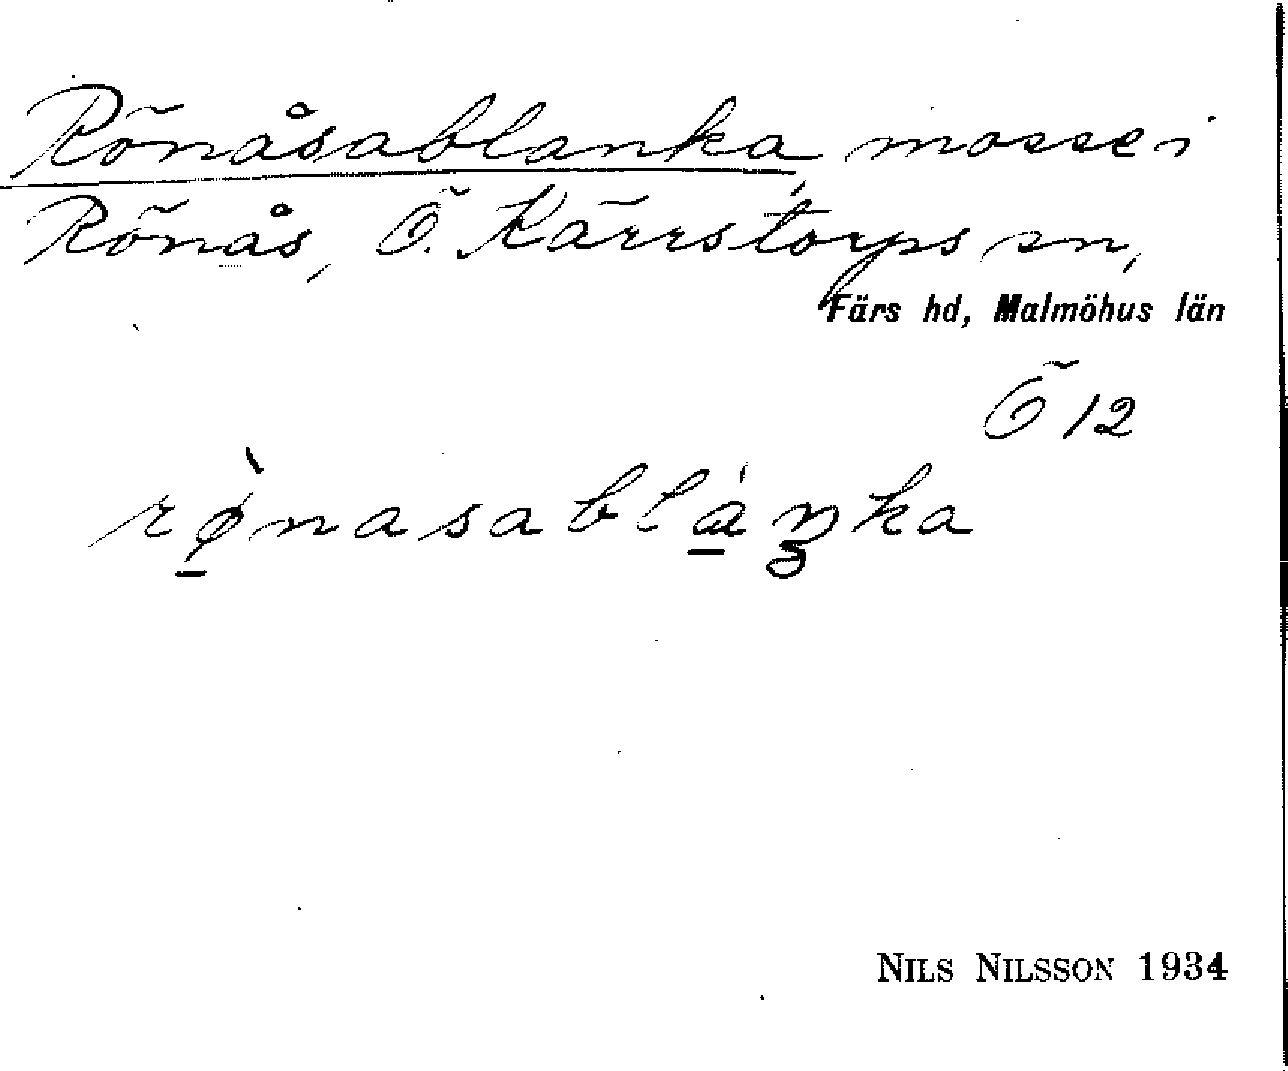 Rönåsablanka, mosse i
Rönås, Ö. Kärrstorps sn,
Färs hd, Malmöhus län
Ö 12
rø̀nasabláŋka
NILS NILSSON 1934